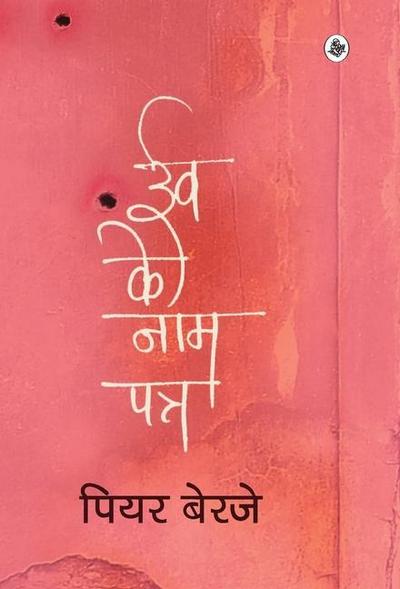 ईव
के
नाम
पत्र
पियर बेरजे